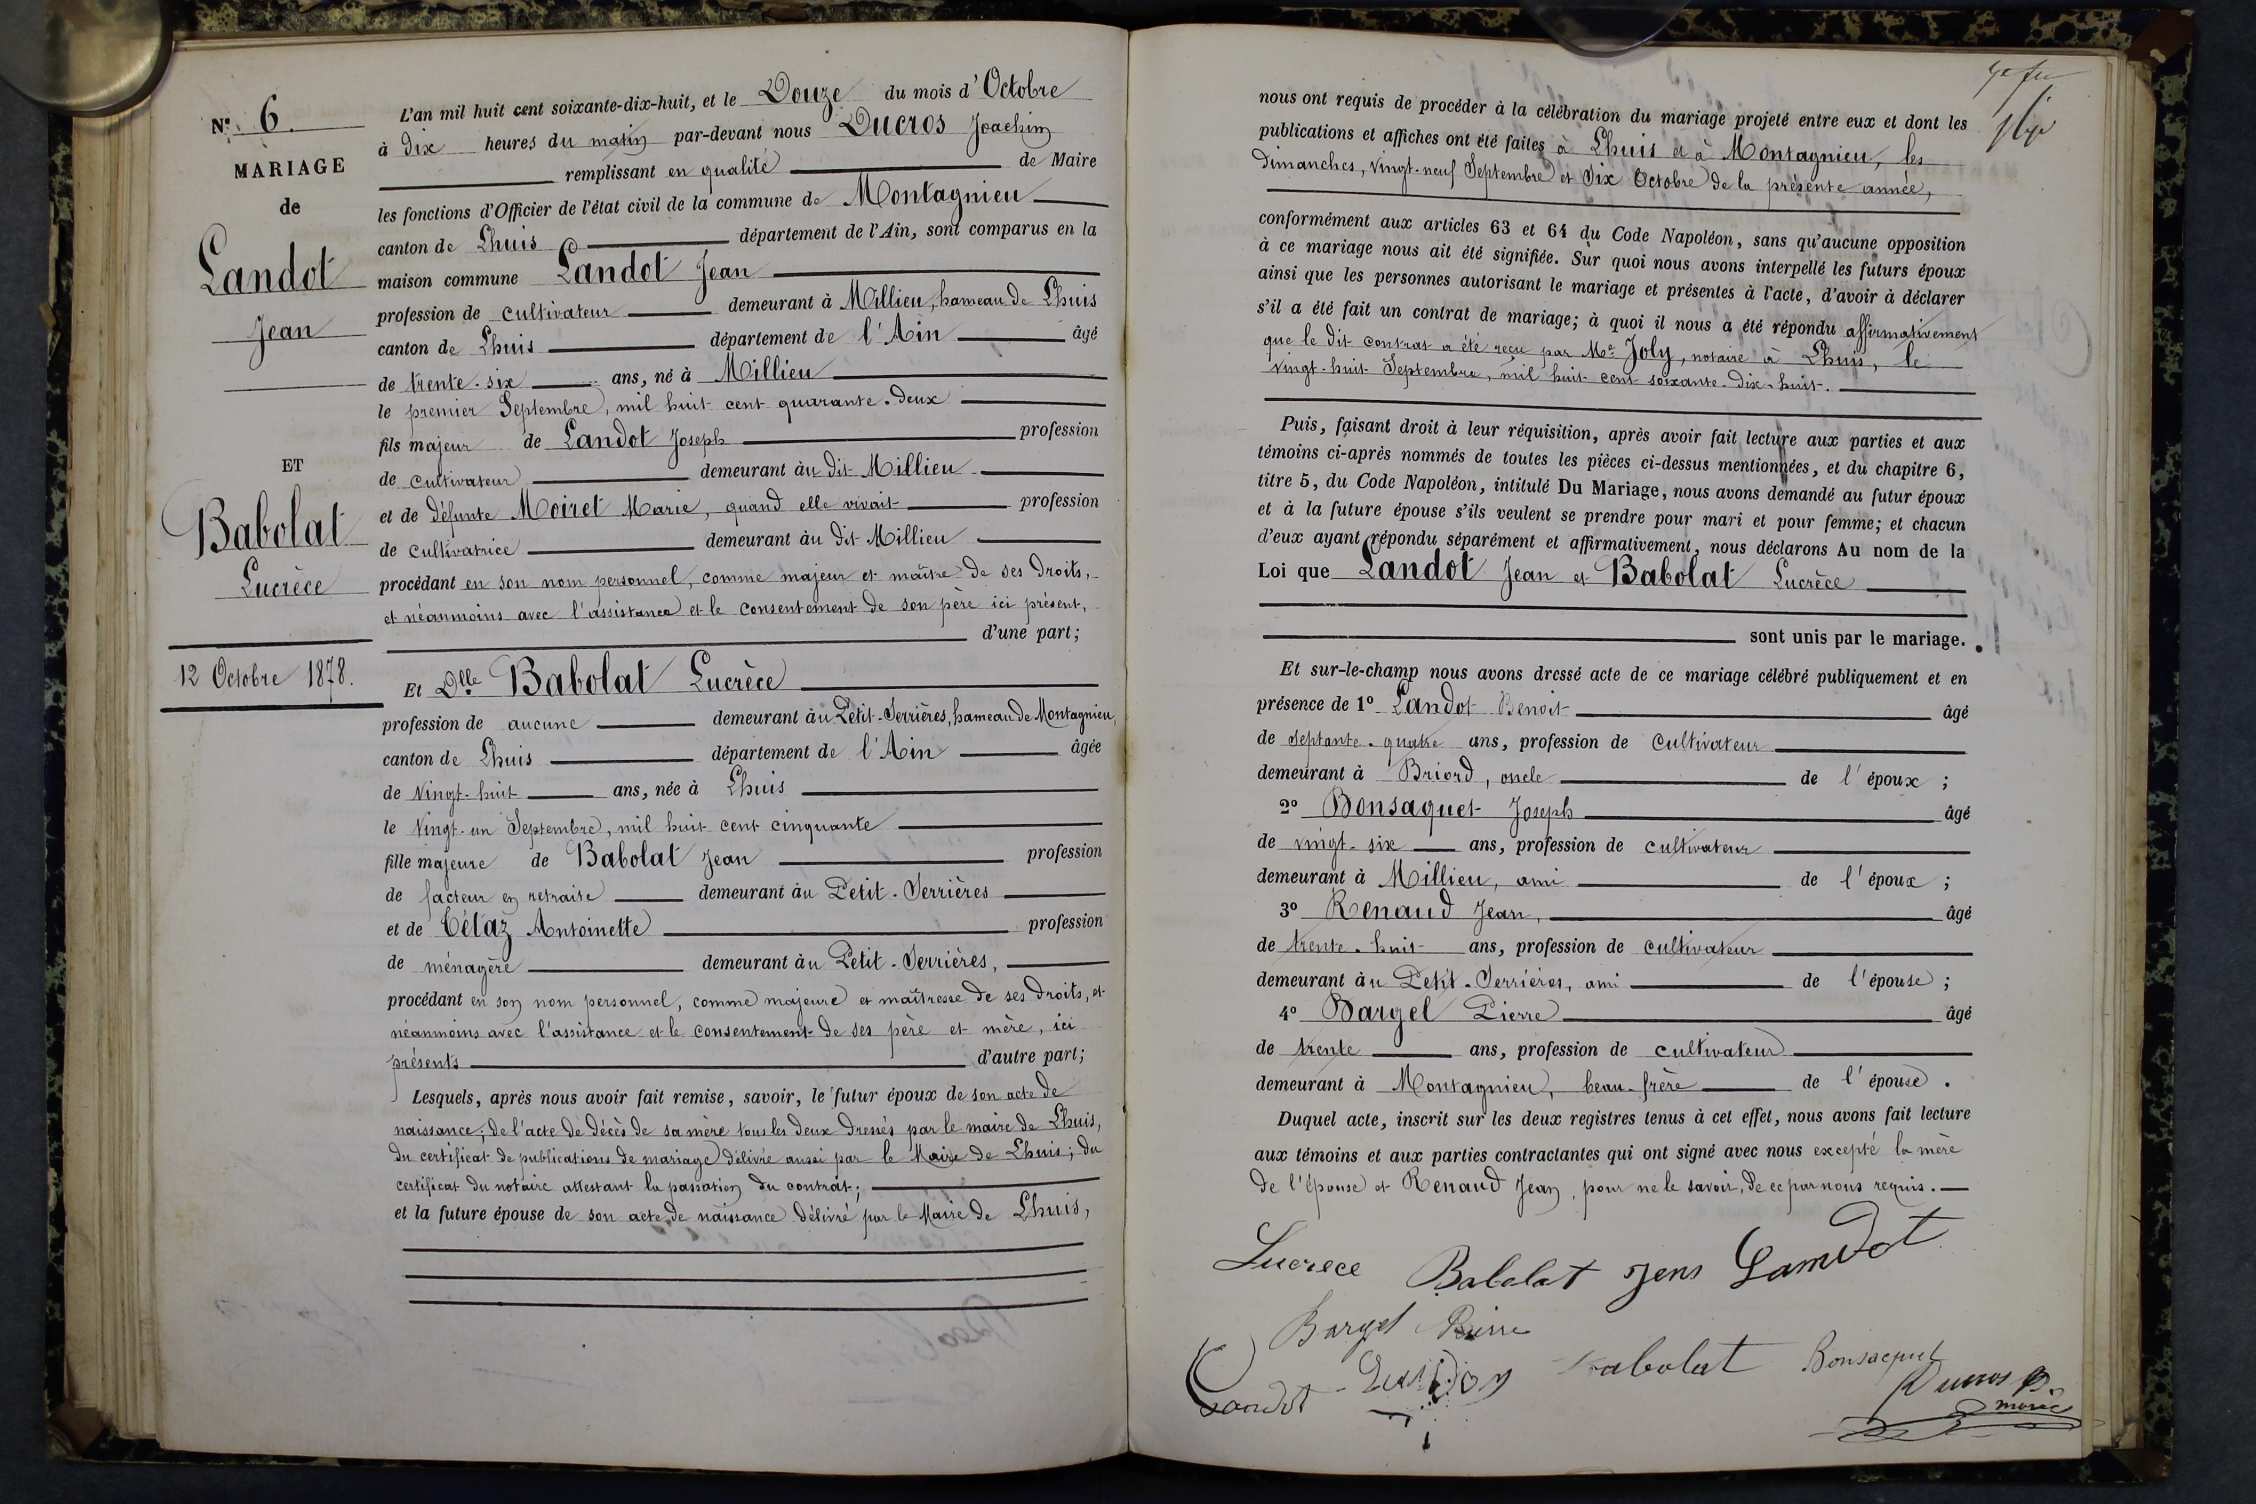 N° 6.
MARIAGE
de
Landot
Jean
ET
Babolat
Lucrèce
12 Octobre 1878.
L'an mil huit cent soixante-dix-huit, et le Douze du mois d'Octobre
à dix heures du matin par-devant nous Ducros Joachim
remplissant en qualité de Maire
les fonctions d'Officier de l'état civil de la commune de Montagnieu
canton de Lhuis département de l'Ain, sont comparus en la
maison commune Landot Jean
profession de cultivateur demeurant à Millieu, hameau de Lhuis
canton de Lhuis département de l'Ain âgé
de trente-six ans, né à Millieu
le premier Septembre, mil huit cent quarante-deux
fils majeur de Landot Joseph profession
de cultivateur demeurant àu dit Millieu
et de défunte Moiret Marie, quand elle vivait profession
de cultivatrice demeurant àu dit Millieu
procédant en son nom personnel, comme majeur et maître de ses droits,
et néanmoins avec l'assistance et le consentement de son père ici présent,
d'une part;
Et Dlle Babolat Lucrèce
profession de aucune demeurant àu Petit-Serrières, hameau de Montagnieu,
canton de Lhuis département de l'Ain âgée
de vingt-huit ans, née à Lhuis
le vingt-un Septembre, mil huit cent cinquante
fille majeure de Babolat Jean profession
de facteur en retraite demeurant àu Petit-Serrières
et de Tétaz Antoinette profession
de ménagère demeurant àu Petit-Serrières,
procédant en son nom personnel, comme majeure et maîtresse de ses droits, et
néanmoins avec l'assistance et le consentement de ses père et mère, ici
présents d'autre part;
Lesquels, après nous avoir fait remise, savoir, le futur époux de son acte de
naissance; de l'acte de décès de sa mère tous les deux dressés par le maire de Lhuis,
du certificat de publications de mariage délivré aussi par le Maire de Lhuis; du
certificat du notaire attestant la passation du contrat;
et la future épouse de son acte de naissance délivré par le Maire de Lhuis,
nous ont requis de procéder à la célébration du mariage projeté entre eux et dont les
publications et affiches ont été faites à Lhuis et à Montagnieu, les
Dimanches, vingt-neuf Septembre et Six Octobre de la présente année,
conformément aux articles 63 et 64 du Code Napoléon, sans qu'aucune opposition
à ce mariage nous ait été signifiée. Sur quoi nous avons interpellé les futurs époux
ainsi que les personnes autorisant le mariage et présentes à l'acte, d'avoir à déclarer
s'il a été fait un contrat de mariage; à quoi il nous a été répondu affirmativement
que le dit contrat a été reçu par Me Joly, notaire à Lhuis, le
vingt-huit Septembre, mil huit cent soixante-dix-huit.
Puis, faisant droit à leur réquisition, après avoir fait lecture aux parties et aux
témoins ci-après nommés de toutes les pièces ci-dessus mentionnées, et du chapitre 6,
titre 5, du Code Napoléon, intitulé Du Mariage, nous avons demandé au futur époux
et à la future épouse s'ils veulent se prendre pour mari et pour femme; et chacun
d'eux ayant répondu séparément et affirmativement, nous déclarons Au nom de la
Loi que Landot Jean et Babolat Lucrèce
sont unis par le mariage.
Et sur-le-champ nous avons dressé acte de ce mariage célébré publiquement et en
présence de 1° Landot Benoit âgé
de septante-quatre ans, profession de cultivateur
demeurant à Briord, oncle de l'époux ;
2° Bonsaquet Joseph âgé
de vingt-six ans, profession de cultivateur
demeurant à Millieu, ami de l'époux ;
3° Renaud Jean, âgé
de trente-huit ans, profession de cultivateur
demeurant àu Petit-Serrières, ami de l'épouse ;
4° Bargel Pierre âgé
de trente ans, profession de cultivateur
demeurant à Montagnieu, beau-frère de l'épouse .
Duquel acte, inscrit sur les deux registres tenus à cet effet, nous avons fait lecture
aux témoins et aux parties contractantes qui ont signé avec nous excepté la mère
de l'épouse et Renaud Jean, pour ne le savoir, de ce par nous requis.
Lucrece Babolat Jens Landot
Bargel Pierre
Landot Babolat Bonsaquet
Ducros